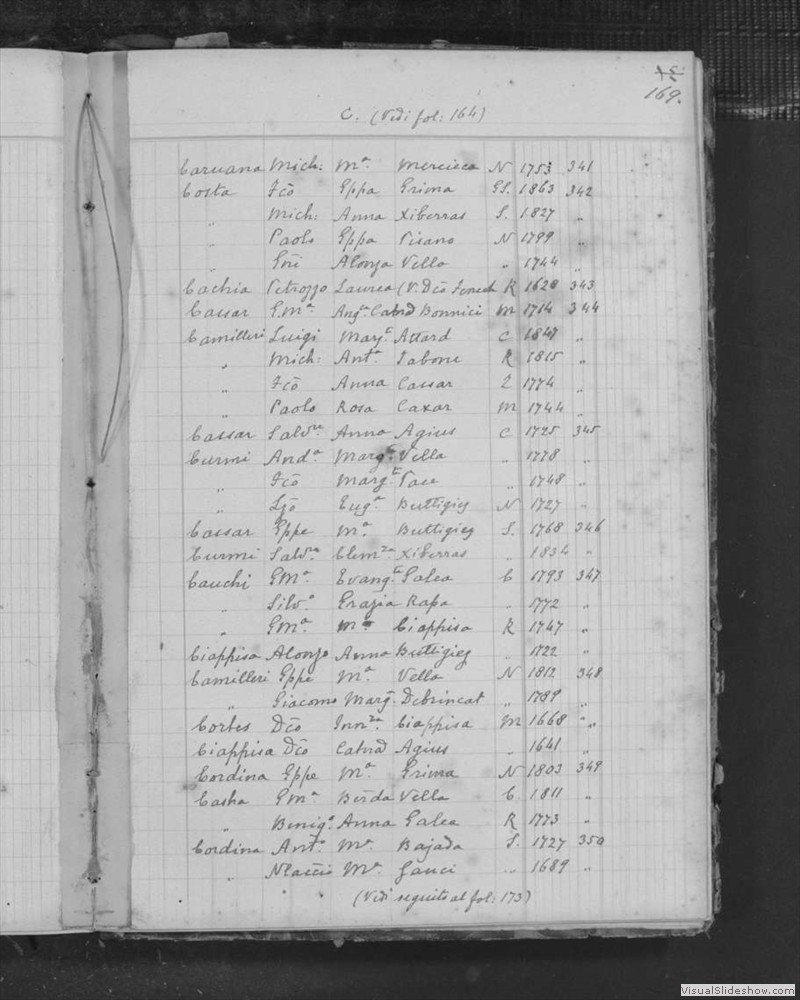 169.
C. (Vedi fol: 164)
Caruana Mich: Mª Mercieca N 1753 341
Costa Fcō Gppa Grima GS. 1863 342
„ Mich: Anna Xiberras S. 1827 „
„ Paolo Gppa Pisano N 1799 „
„ Gni Alonza Vella „ 1744 „
Cachia Petrozzo Laurea (V. Dcō Fenech R 1620 343
Cassar G.Mª Angª Catnd Bonnici M 1714 344
Camilleri Luigi Margᵗ Attard C 1847 „
„ Mich: Antª Tabone R 1815 „
„ Fcō Anna Cassar Z 1774 „
„ Paolo Rosa Caxar M 1744 „
Cassar Salvʳᵉ Anna Agius C 1725 345
Curmi Andª Margᵗ Vella „ 1778 „
„ Fcō Margᵗ Pace „ 1748 „
„ Lzō Eugª Buttigieg N 1727 „
Cassar Gppe Mª Buttigieg S. 1768 346
Curmi Salvʳᵉ Clemᶻᵃ Xiberras „ 1834 „
Cauchi GMª Evangᵗᵃ Galea C 1793 347
„ Silvº Grazia Rapa „ 1772 „
„ GMª Mª Ciappisa R 1747 „
Ciappisa Alonzo Anna Buttigieg „ 1722 „
Camilleri Gppe Mª Vella N 1812 348
„ Giacomo Marg. Debrincat „ 1789 „
Cortes Dcō Innᶻᵃ Ciappisa M 1668 „
Ciappisa Dcō Catnd Agius „ 1641 „
Cordina Gppe Mª Grima N 1803 349
Casha GMª Berda Vella C. 1811 „
„ Benigº Anna Galea R 1773 „
Cordina Antº Mª Bajada S. 1727 350
„ Mª Gauci „ 1689 „
(Vedi seguito al fol: 173)
VisualSlideshow.com